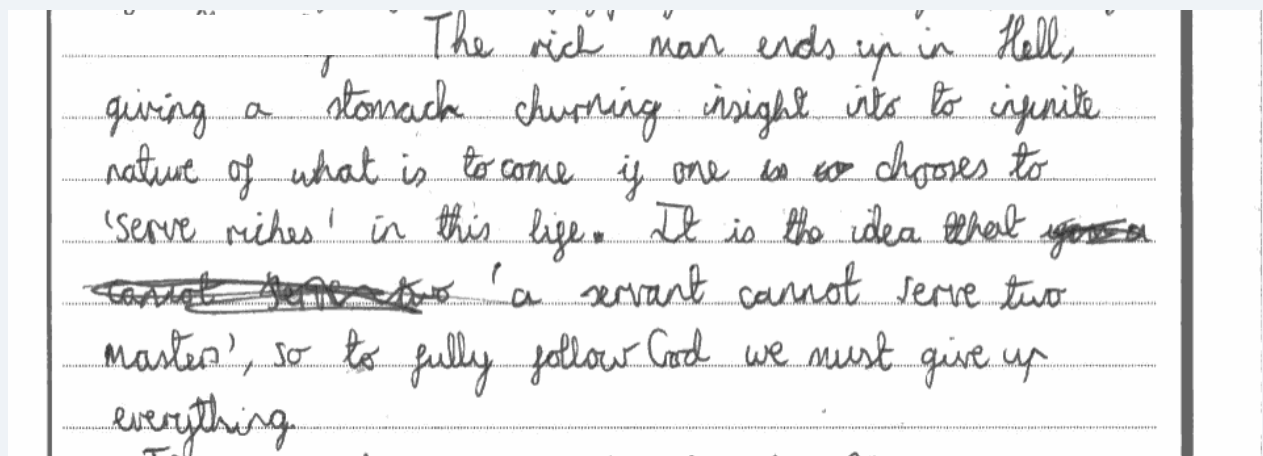 The rich man ends up in Hell,
giving a stomach churning insight into to infinite
nature of what is to come if one is to chooses to
'serve riches' in this life. It is the idea that
'a servant cannot serve two
masters', so to fully follow God we must give up
everything.